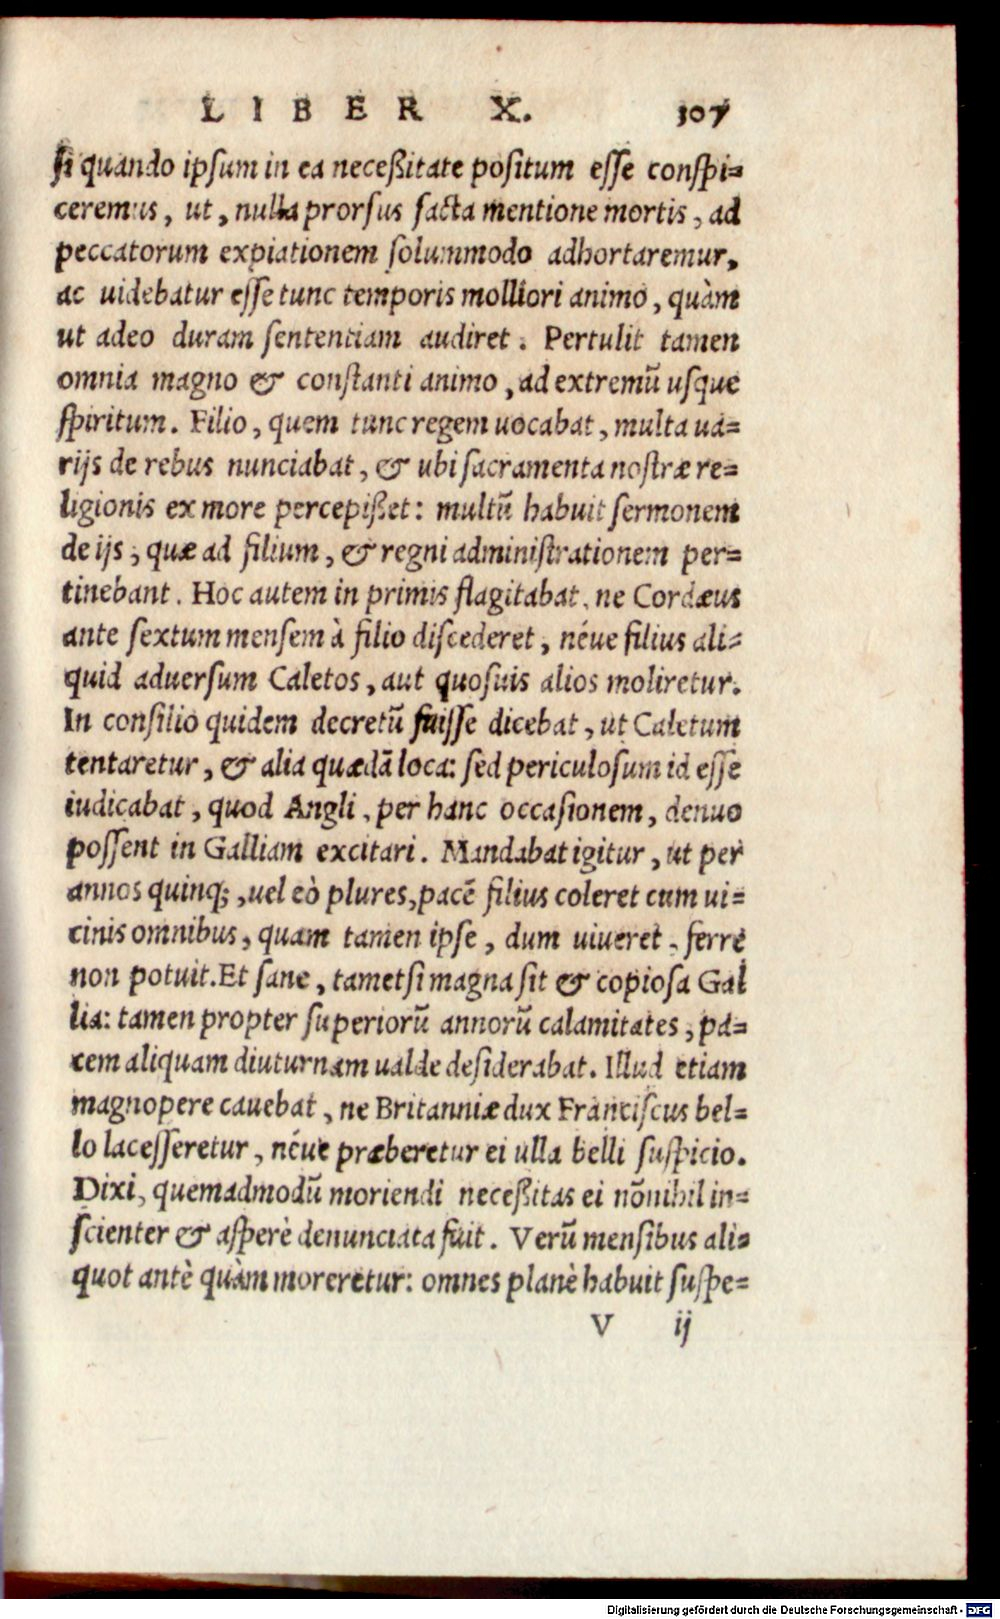 LIBER X. 307
si quando ipsum in ea neceßitate positum esse conspi=
ceremus, ut, nulla prorsus facta mentione mortis, ad
peccatorum expiationem solummodo adhortaremur,
ac uidebatur esse tunc temporis molliori animo, quàm
ut adeo duram sententiam audiret. Pertulit tamen
omnia magno & constanti animo, ad extremũ usque
spiritum. Filio, quem tunc regem uocabat, multa ua=
rijs de rebus nunciabat, & ubi sacramenta nostræ re=
ligionis ex more percepißet: multũ habuit sermonem
de ijs, quæ ad filium, & regni administrationem per=
tinebant. Hoc autem in primis flagitabat, ne Cordæus
ante sextum mensem à filio discederet, néue filius ali=
quid aduersum Caletos, aut quosuis alios moliretur.
In consilio quidem decretũ fuisse dicebat, ut Caletum
tentaretur, & alia quædã loca: sed periculosum id esse
iudicabat, quod Angli, per hanc occasionem, denuo
possent in Galliam excitari. Mandabat igitur, ut per
annos quinq;, uel eò plures, pacẽ filius coleret cum ui=
cinis omnibus, quam tamen ipse, dum uiueret, ferre
non potuit. Et sane, tametsi magna sit & copiosa Gal
lia: tamen propter superiorũ annorũ calamitates, pa=
cem aliquam diuturnam ualde desiderabat. Illud etiam
magnopere cauebat, ne Britanniæ dux Franciscus bel=
lo lacesseretur, néue præberetur ei ulla belli suspicio.
Dixi, quemadmodũ moriendi neceßitas ei nõnihil in=
scienter & asperè denunciata fuit. Verũ mensibus ali=
quot antè quàm moreretur: omnes planè habuit suspe=
V ij
Digitalisierung gefördert durch die Deutsche Forschungsgemeinschaft - DFG